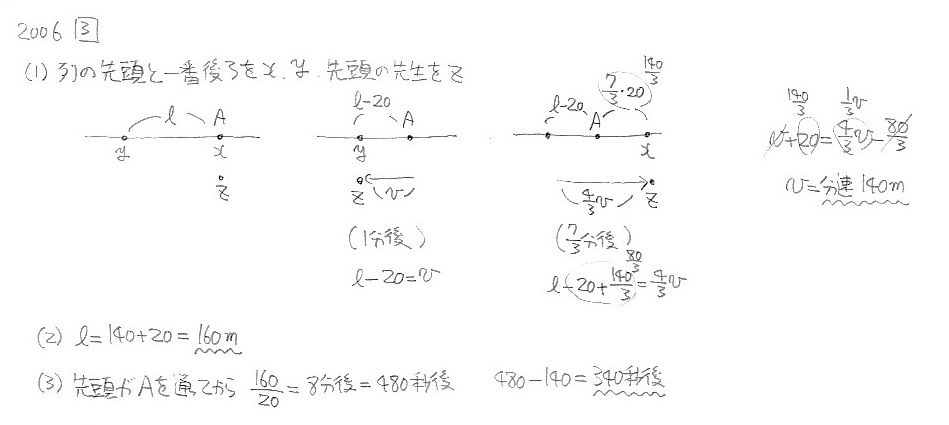 2006 3
(1) 列の先頭と一番後ろをx, y, 先頭の先生をz
l A
y x
z
l-20
A
y
z v
(1分後)
l-20=v
140/3
7/3・20
l-20 A
x
4/3v z
(7/3分後)
80/3
l-20+140/3=4/3v
140/3 1/3v
v+20=4/3v-80/3
v=分速140m
(2) l=140+20=160m
(3) 先頭がAを通ってから 160/20=8分後=480秒後 480-140=340秒後